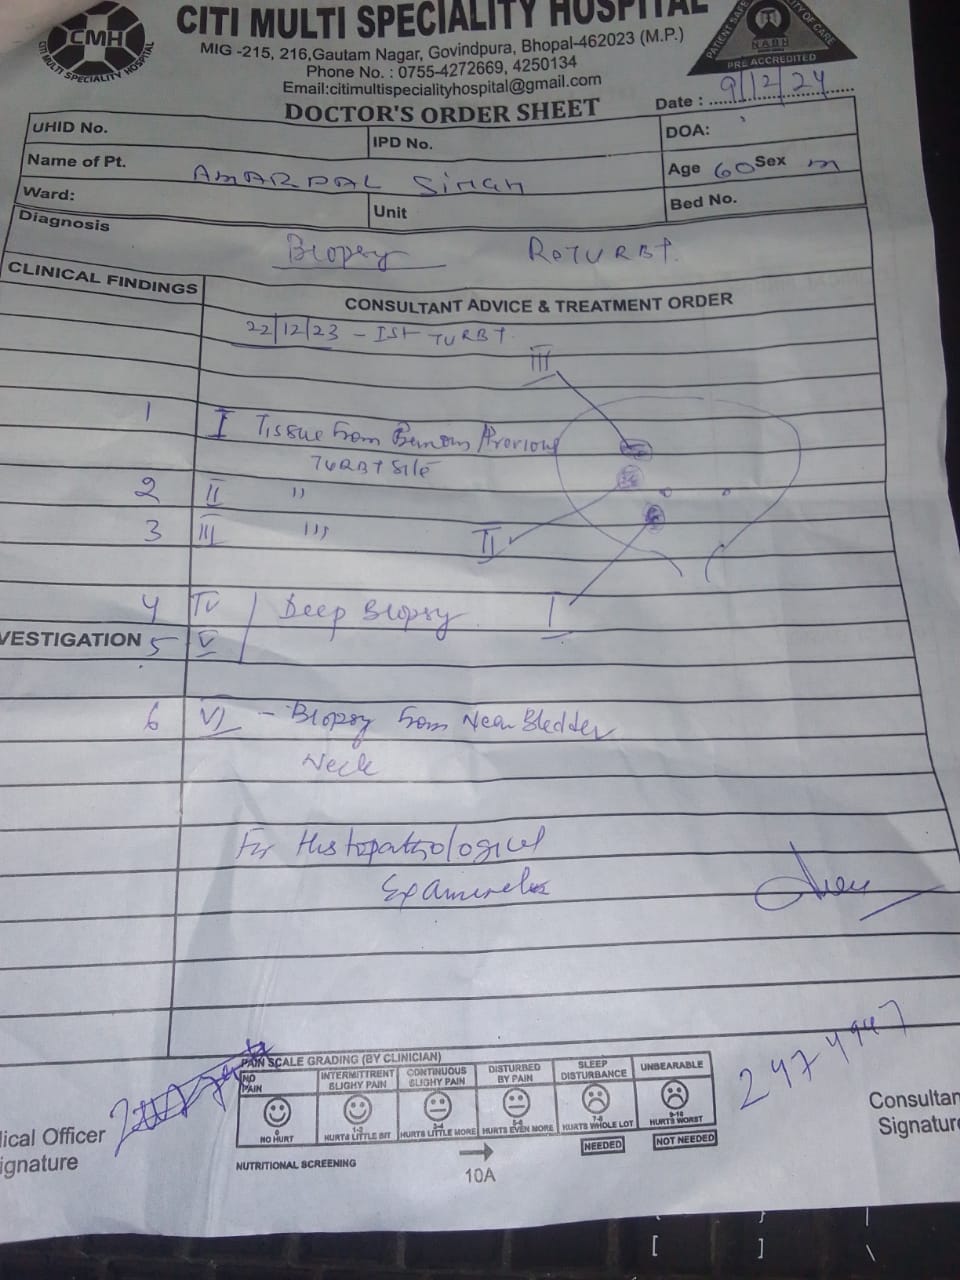 CITI MULTI SPECIALITY HOSPITAL
CMH
CITI MULTI SPECIALITY HOSPITAL
MIG -215, 216,Gautam Nagar, Govindpura, Bhopal-462023 (M.P.)
Phone No. : 0755-4272669, 4250134
Email:citimultispecialityhospital@gmail.com
PATIENT SAFE
ITY OF CARE
NABH
PRE ACCREDITED
DOCTOR'S ORDER SHEET
Date : 9/12/24
UHID No.
IPD No.
DOA:
Name of Pt. AMARPAL SINGH
Age 60 Sex m
Ward:
Unit
Bed No.
Diagnosis
Biopsy ReTURBT.
CLINICAL FINDINGS
CONSULTANT ADVICE & TREATMENT ORDER
22/12/23 - Ist TURBT
III
1 I Tissue from Previous
TURBT Site
2 II "
3 III "'
II
4 IV Deep Biopsy
I
VESTIGATION 5 V
6 VI - Biopsy from Near Bladder
Neck
For Histopathological
Examination
2474947
PAIN SCALE GRADING (BY CLINICIAN)
NO PAIN
INTERMITTRENT SLIGHY PAIN
CONTINUOUS SLIGHY PAIN
DISTURBED BY PAIN
SLEEP DISTURBANCE
UNBEARABLE
0 NO HURT
1-2 HURTS LITTLE BIT
3-4 HURTS LITTLE MORE
5-6 HURTS EVEN MORE
7-8 HURTS WHOLE LOT
9-10 HURTS WORST
NEEDED
NOT NEEDED
NUTRITIONAL SCREENING
10A
dical Officer
ignature
Consultan
Signature